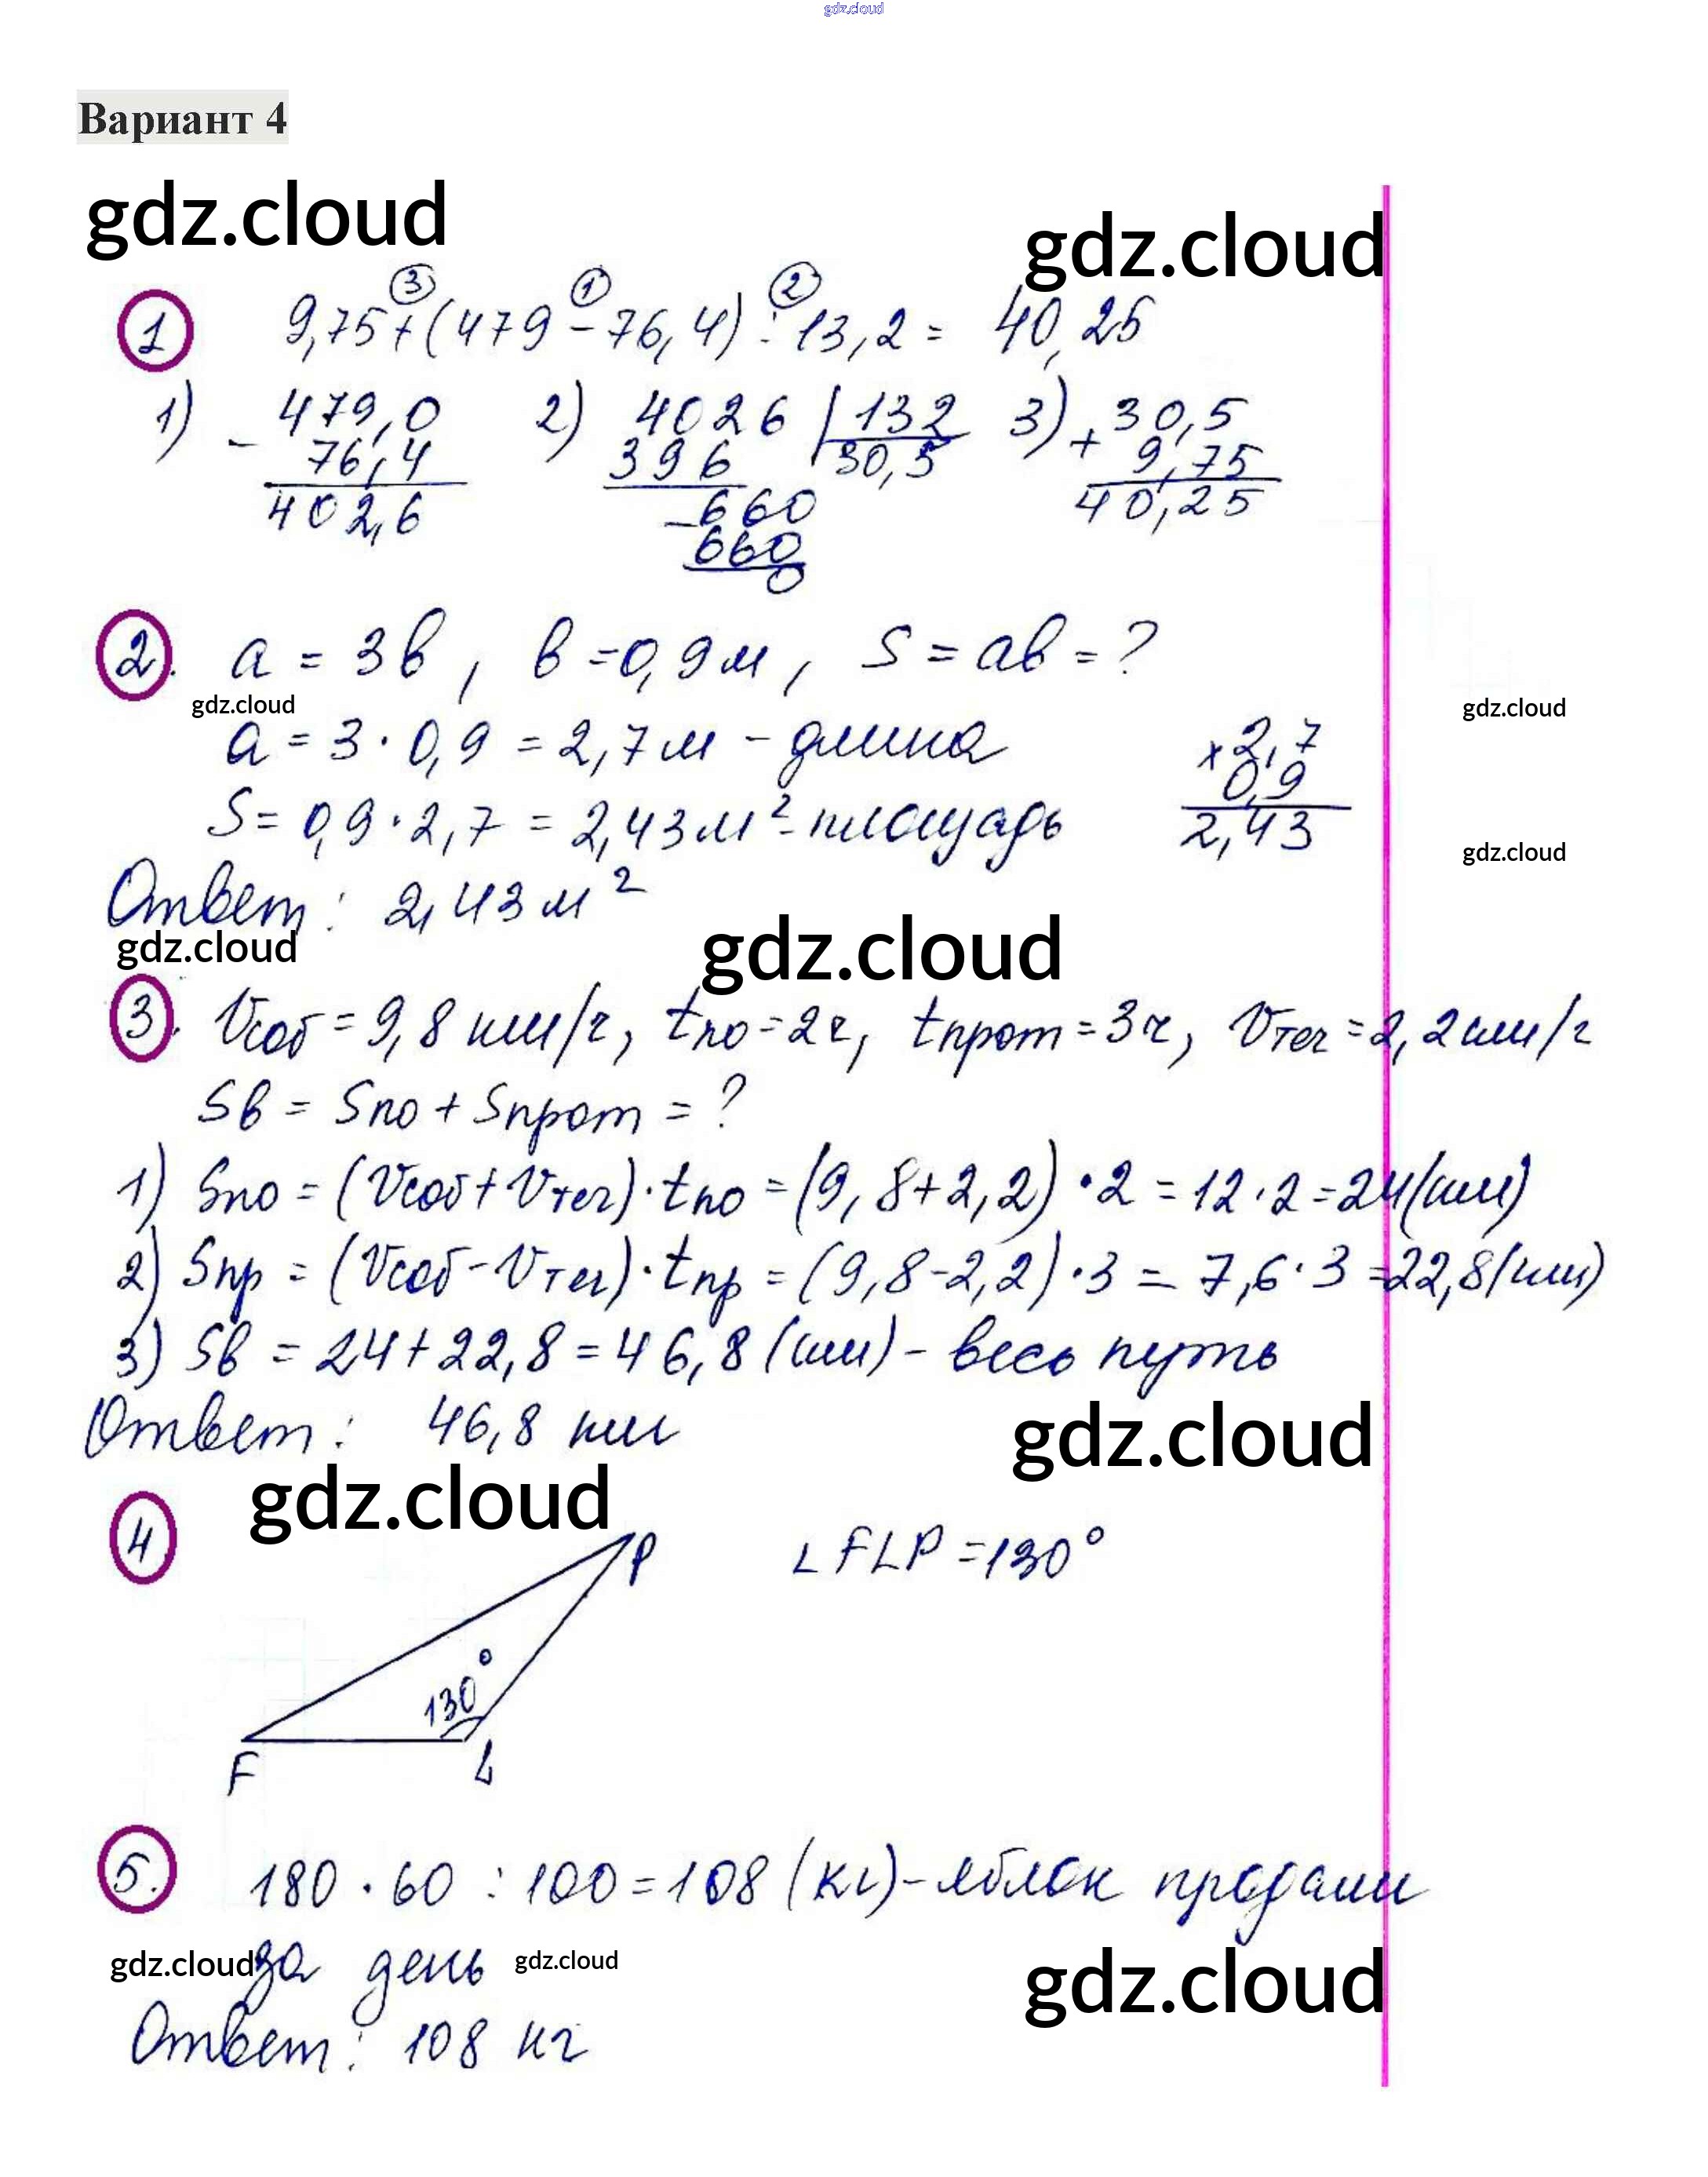 gdz.cloud
Вариант 4
gdz.cloud
gdz.cloud
3 1 2
1 9,75+(479-76,4):13,2= 40,25
1) 479,0 2) 4026 132 3) +30,5
- 76,4 396 30,5 9,75
402,6 -660 40,25
660
0
2. a = 3b, b=0,9м, S=ab=?
gdz.cloud gdz.cloud
a = 3·0,9 = 2,7м - длина ×2,7
0,9
S= 0,9·2,7 = 2,43м²- площадь 2,43
gdz.cloud
Ответ: 2,43м²
gdz.cloud gdz.cloud
3. Vсоб=9,8 км/ч, tпо=2ч, tпрот=3ч, Vтеч=2,2км/ч
Sв = Sпо+Sпрот=?
1) Sпо=(Vсоб+Vтеч)·tпо=(9,8+2,2)·2=12·2=24(км)
2) Sпр=(Vсоб-Vтеч)·tпр=(9,8-2,2)·3=7,6·3=22,8(км)
3) Sв = 24+22,8=46,8(км)- весь путь
Ответ: 46,8 км
gdz.cloud
gdz.cloud
4 P ∠FLP=130°
130°
F L
5. 180·60:100=108(кг)-яблок продали
gdz.cloud за день gdz.cloud gdz.cloud
Ответ: 108 кг